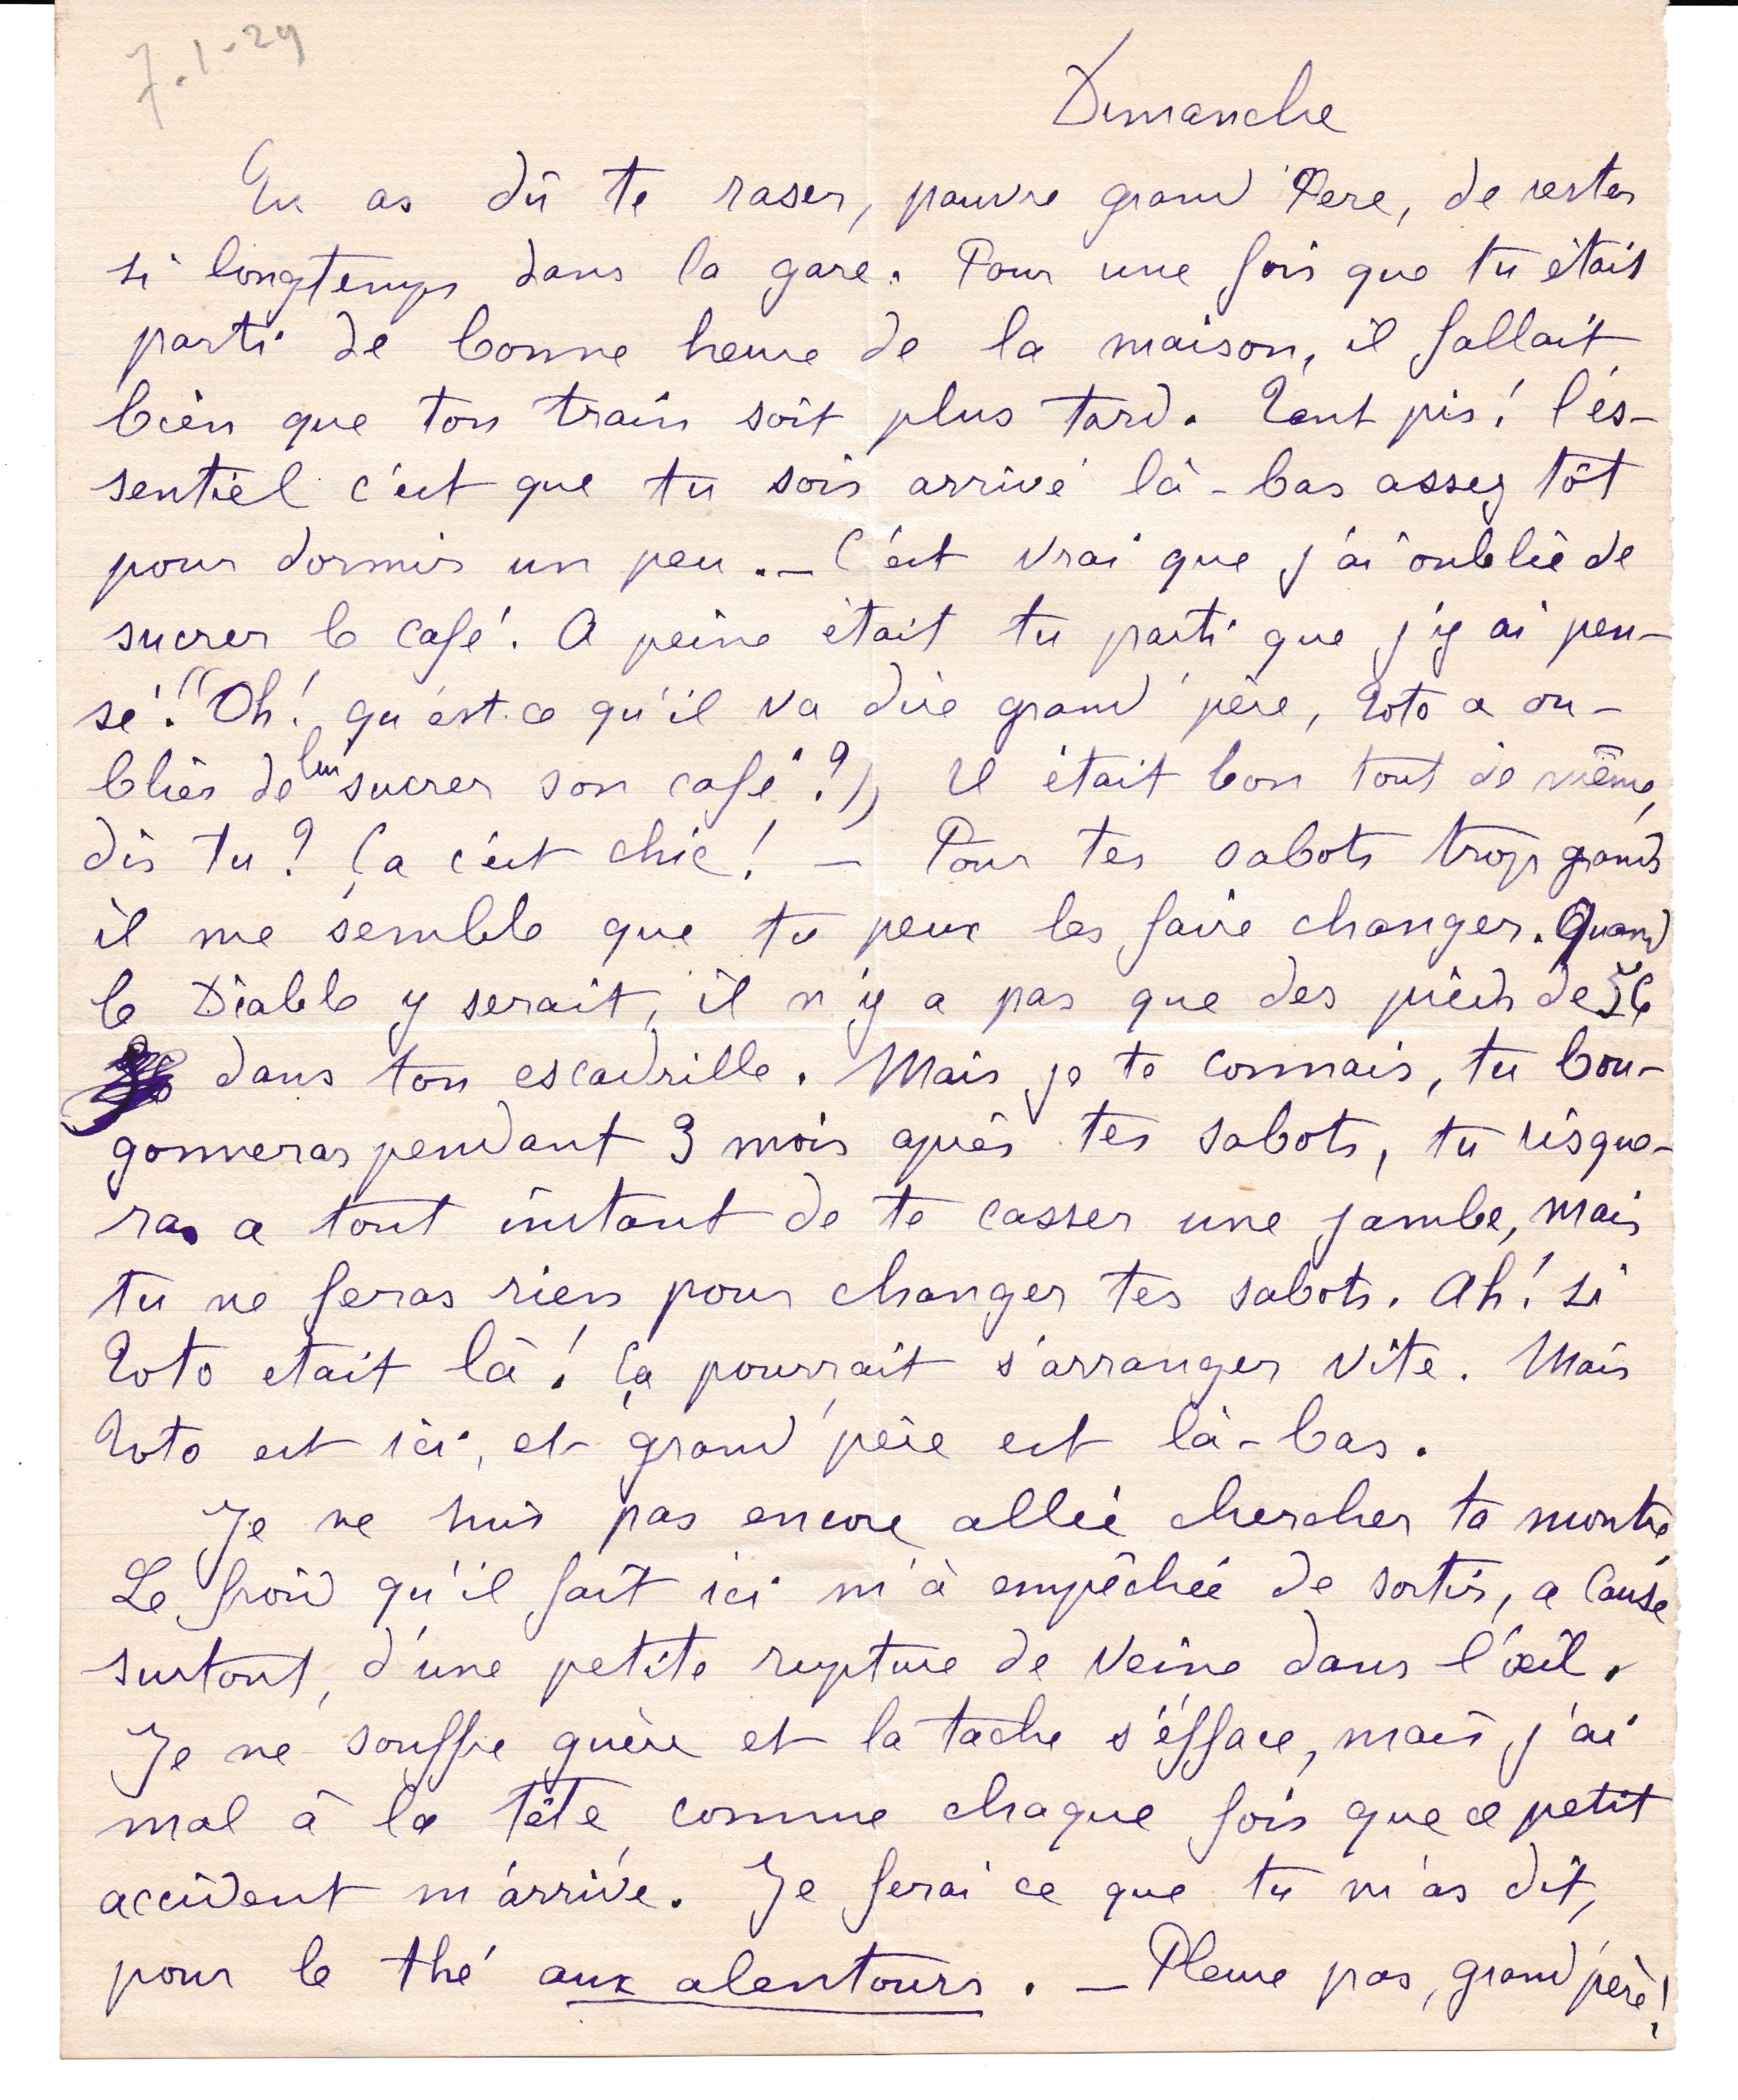 7-1-29
Dimanche
Tu as dû te raser, pauvre grand'Père, de rester
si longtemps dans la gare. Pour une fois que tu étais
parti de bonne heure de la maison, il fallait
bien que ton train soit plus tard. Tant pis! l'és-
sentiel c'est que tu sois arrivé là-bas assez tôt
pour dormir un peu. _ C'est vrai que j'ai oublié de
sucrer le café. A peine était tu parti que j'y ai pen-
sé! "Oh! qu'est-ce qu'il va dire grand'père, Toto a ou-
bliér de lui sucrer son café?" Il était bon tout de même,
dis tu? Ça c'est chic! _ Pour tes sabots trop grands
il me semble que tu peux les faire changer. Quand
le Diable y serait, il n'y a pas que des pieds de 56
dans ton escadrille. Mais je te connais, tu bou-
gonneras pendant 3 mois après tes sabots, tu risque-
ras a tout instant de te casser une jambe, mais
tu ne feras rien pour changer tes sabots. Ah! si
Toto etait là! Ça pourrait s'arranger vite. Mais
Toto est ici, et grand'père est là-bas.
Je ne suis pas encore allée chercher ta montre
Le froid qu'il fait ici m'à empêchée de sortir, a cause
surtout, d'une petite rupture de veine dans l'œil.
Je ne souffre guère et la tache s'éfface, mais j'ai
mal à la tête comme chaque fois que ce petit
accident m'arrive. Je ferai ce que tu m'as dit,
pour le thé aux alentours. _ Pleure pas, grand'père!